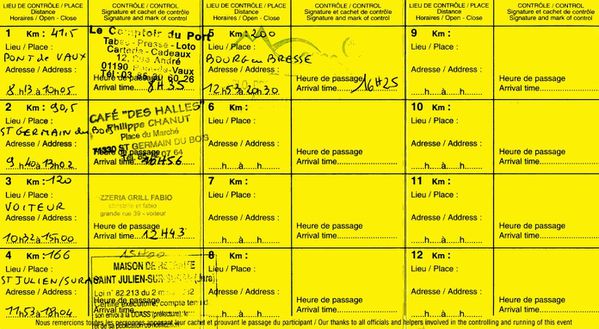 LIEU DE CONTRÔLE / PLACE
Distance
Horaires / Open - Close
CONTRÔLE / CONTROL
Signature et cachet de contrôle
Signature and mark of control
LIEU DE CONTRÔLE / PLACE
Distance
Horaires / Open - Close
CONTRÔLE / CONTROL
Signature et cachet de contrôle
Signature and mark of control
LIEU DE CONTRÔLE / PLACE
Distance
Horaires / Open - Close
CONTRÔLE / CONTROL
Signature et cachet de contrôle
Signature and mark of control
1 Km : 41.5
Lieu / Place :
PONT de VAUX
Adresse / Address :
8 h13 à 10h15
Le Comptoir du Port
Tabac - Presse - Loto
Carterie - Cadeaux
12, Rue André
01190 de-Vaux
Heure de passage
Arrival time 8H35
5 Km : 200
Lieu / Place :
BOURG en BRESSE
Adresse / Address :
12h53 à 20h30
Heure de passage
Arrival time 16H25
9 Km :
Lieu / Place :
Adresse / Address :
h à h
Heure de passage
Arrival time
2 Km : 90,5
Lieu / Place :
ST GERMAIN du BOIS
Adresse / Address :
9 h40 à 13h02
CAFÉ "DES HALLES"
Philippe CHANUT
Place du Marché
71330 ST GERMAIN DU BOIS
Heure de passage
10H56
6 Km :
Lieu / Place :
Adresse / Address :
h à h
Heure de passage
Arrival time
10 Km :
Lieu / Place :
Adresse / Address :
h à h
Heure de passage
Arrival time
3 Km : 120
Lieu / Place :
VOITEUR
Adresse / Address :
10h32 à 15h00
ZZERIA GRILL FABIO
christele et fabio
grande rue 39 - voiteur
Heure de passage
Arrival time 12H43
7 Km :
Lieu / Place :
Adresse / Address :
h à h
Heure de passage
Arrival time
11 Km :
Lieu / Place :
Adresse / Address :
h à h
Heure de passage
Arrival time
4 Km : 166
Lieu / Place :
ST JULIEN/SURAN
Adresse / Address :
11h53 à 18h04
15H00
MAISON DE RETRAITE
SAINT JULIEN-SUR-
Loi n° 82.213 du 2
Heure de passage
8 Km :
Lieu / Place :
Adresse / Address :
h à h
Heure de passage
Arrival time
12 Km :
Lieu / Place :
Adresse / Address :
h à h
Heure de passage
Arrival time
Nous remercions toutes les personnes apposant leur cachet et prouvant le passage du participant / Our thanks to all officials and helpers involved in the controlling and running of this event